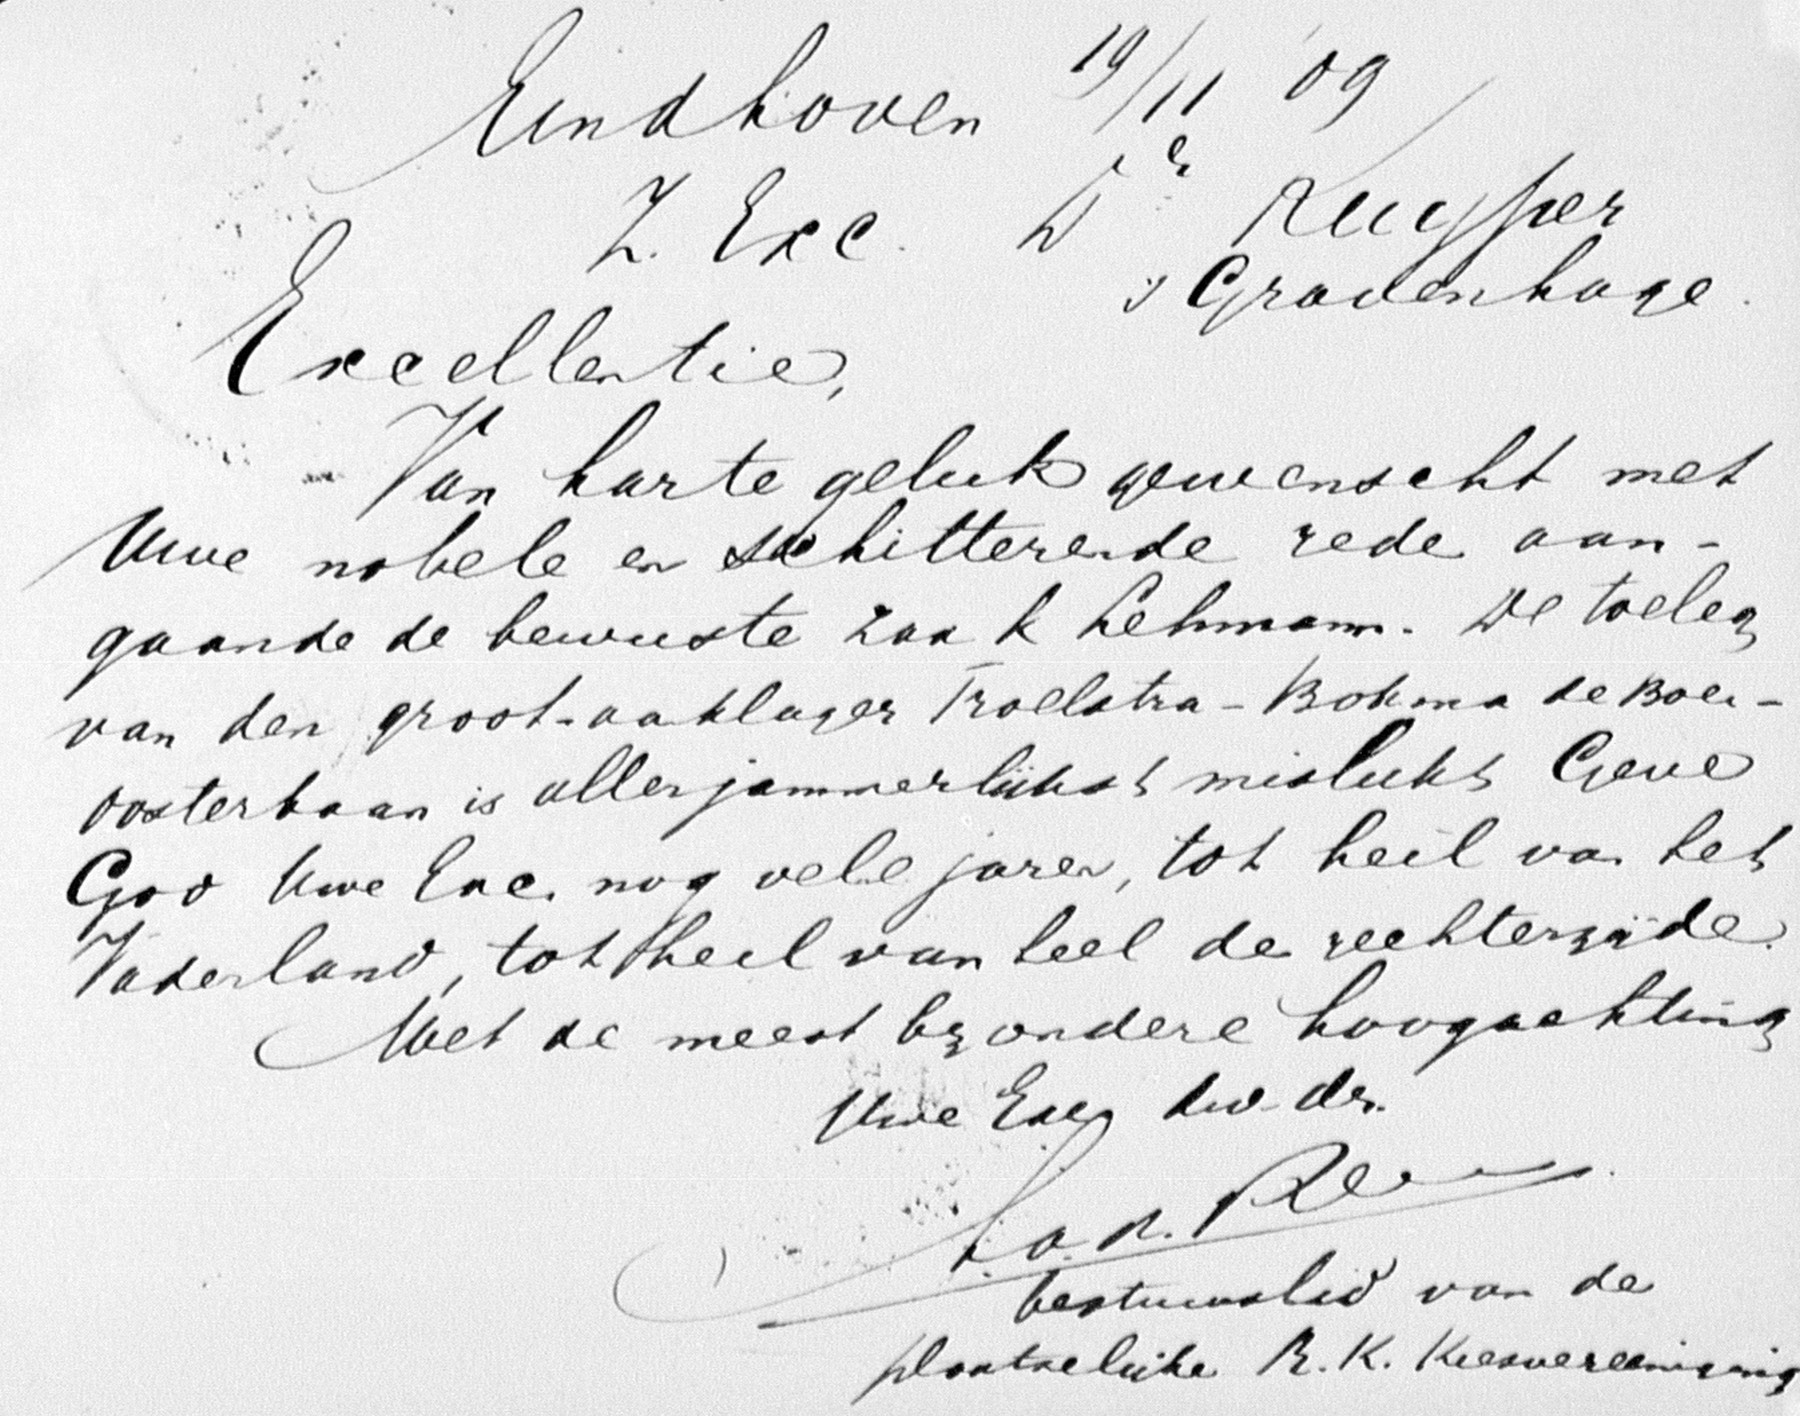 Eindhoven 19/11 '09
Z. Exc. Dr Kuyper
's Gravenhage.
Excellentie,
Van harte geluk gewenscht met
Uwe nobele en schitterende rede aan-
gaande de bewuste zaak Lehmann. De toeleg
van den groot-aaklager Troelstra-Bokma de Boer-
Oosterbaan is allerjammerlijkst mislukt Geve
God Uwe Exc. nog vele jaren, tot heil van het
Vaderland, tot heil van heel de rechterzijde.
Met de meest bijzondere hoogachting
Uwe Exc. dw. dr.
bestuurslid van de
plaatselijke R. K. Kiesvereeniging